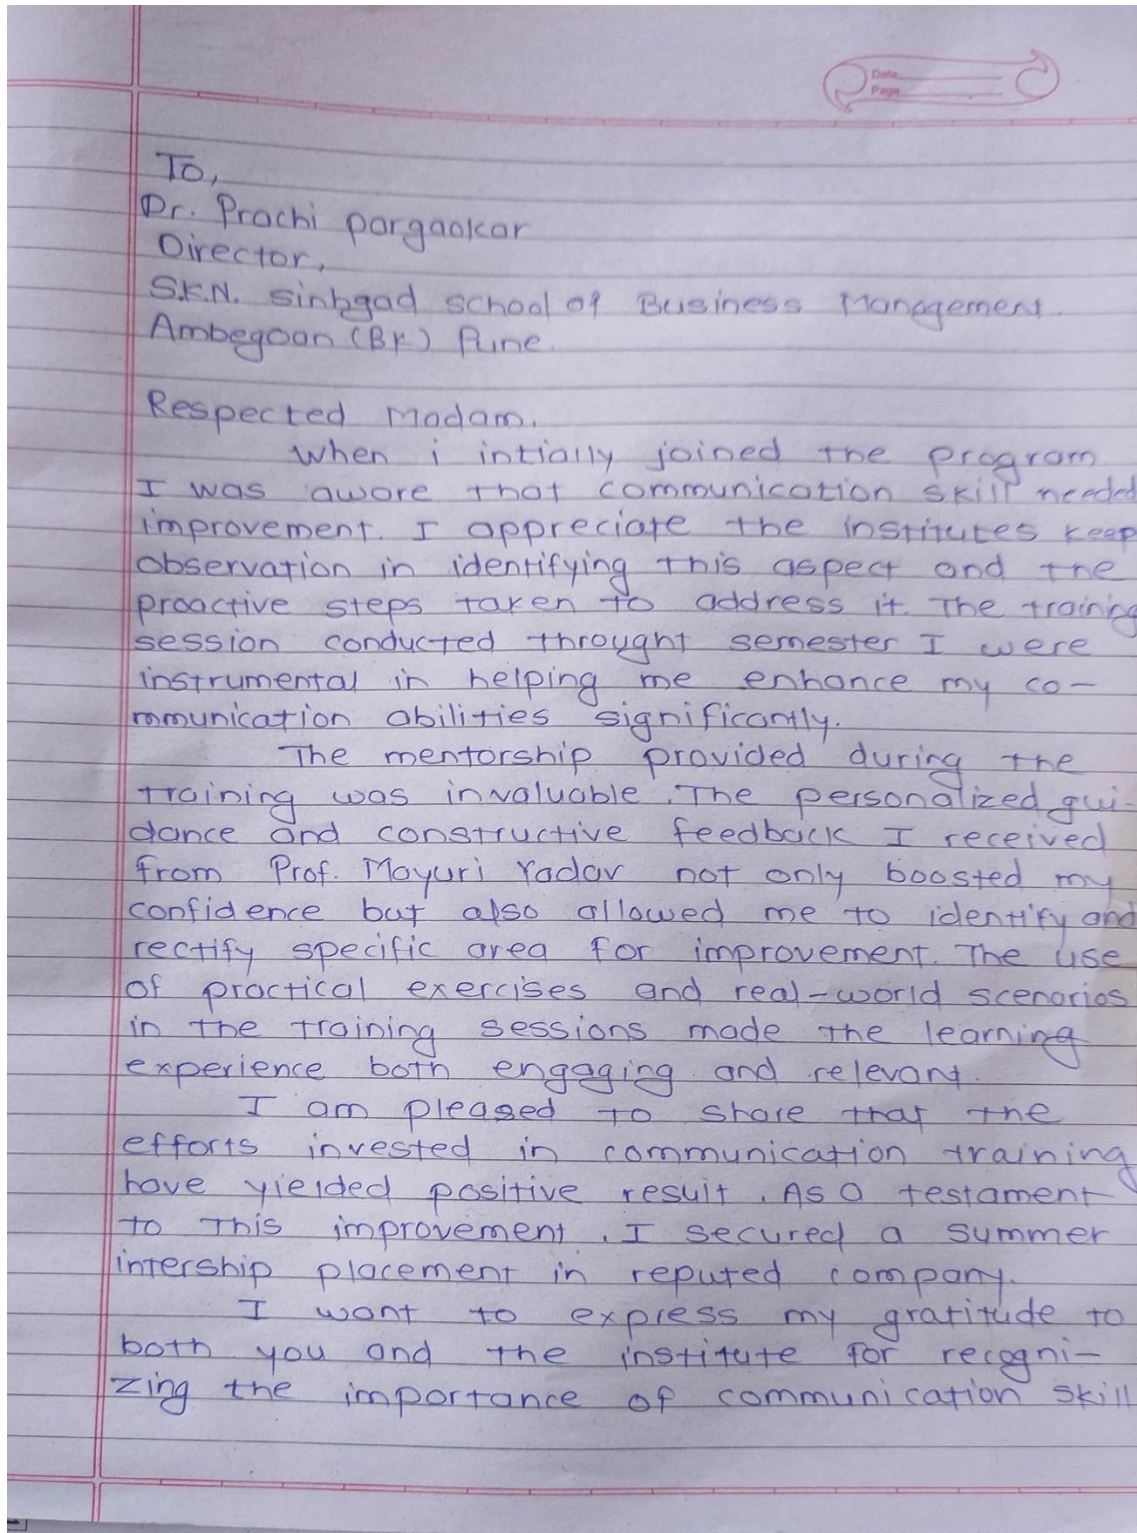 Date
Page
To,
Dr. Prachi pargaokar
Director,
S.K.N. sinhgad school of Business Management.
Ambegaan (BK) Pune.
Respected Madam.
When i intially joined the program
I was aware that communication skill needed
improvement. I appreciate the institutes keep
observation in identifying this aspect and the
proactive steps taken to address it. The training
session conducted throught semester I were
instrumental in helping me enhance my co-
mmunication abilities significantly.
The mentorship provided during the
training was invaluable. The personalized gui-
dance and constructive feedback I received
from Prof. Mayuri Yadav not only boosted my
confidence but also allowed me to identify and
rectify specific area for improvement. The use
of practical exercises and real-world scenarios
in the training sessions made the learning
experience both engaging and relevant.
I am pleased to share that the
efforts invested in communication training
have yielded positive result. As a testament
to this improvement, I secured a summer
intership placement in reputed company.
I want to express my gratitude to
both you and the institute for recogni-
zing the importance of communication skill